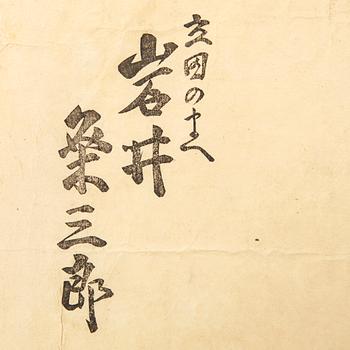 立田のまへ
岩井
粂三郎